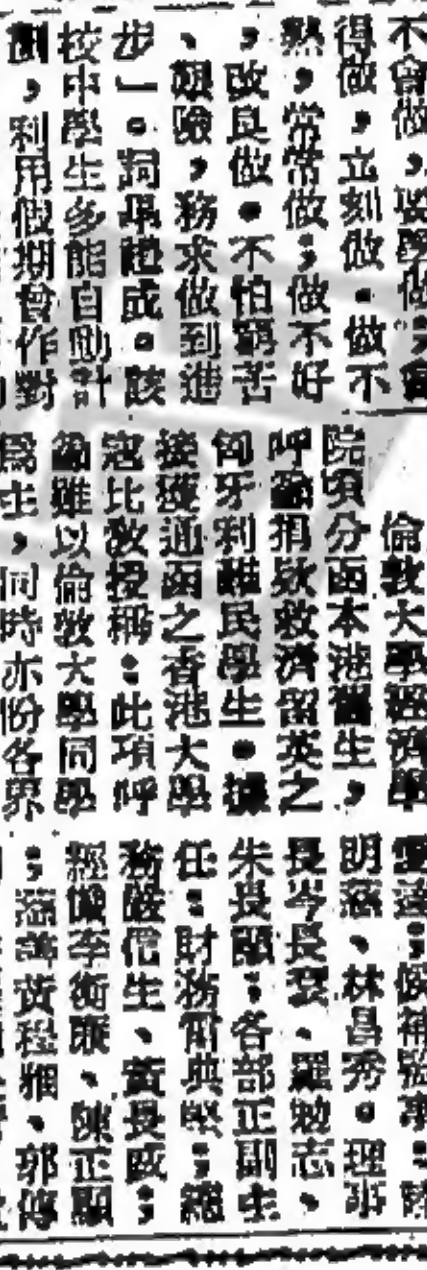 不會做，要學做；會
得做，立刻做。做不
熟，常常做；做不好
，改良做。不怕窮苦
、艱險，務求做到進
步」。詞畢禮成。該
校中學生多能自動計
劃，利用假期會作對
倫敦大學經濟學
院頃分函本港舊生，
呼籲捐欵救濟留英之
匈牙利難民學生。據
接獲通函之香港大學
寇比敎授稱：此項呼
籲雖以倫敦大學同學
爲主，同時亦份各界
候補監事：陸
明蓀、林昌秀。理事
長岑長袞、羅勉志、
朱長；各部正副主
任：財務典；總
務嚴信生、黃長威；
經懺李衡康、陳正顯
；程、郭傳